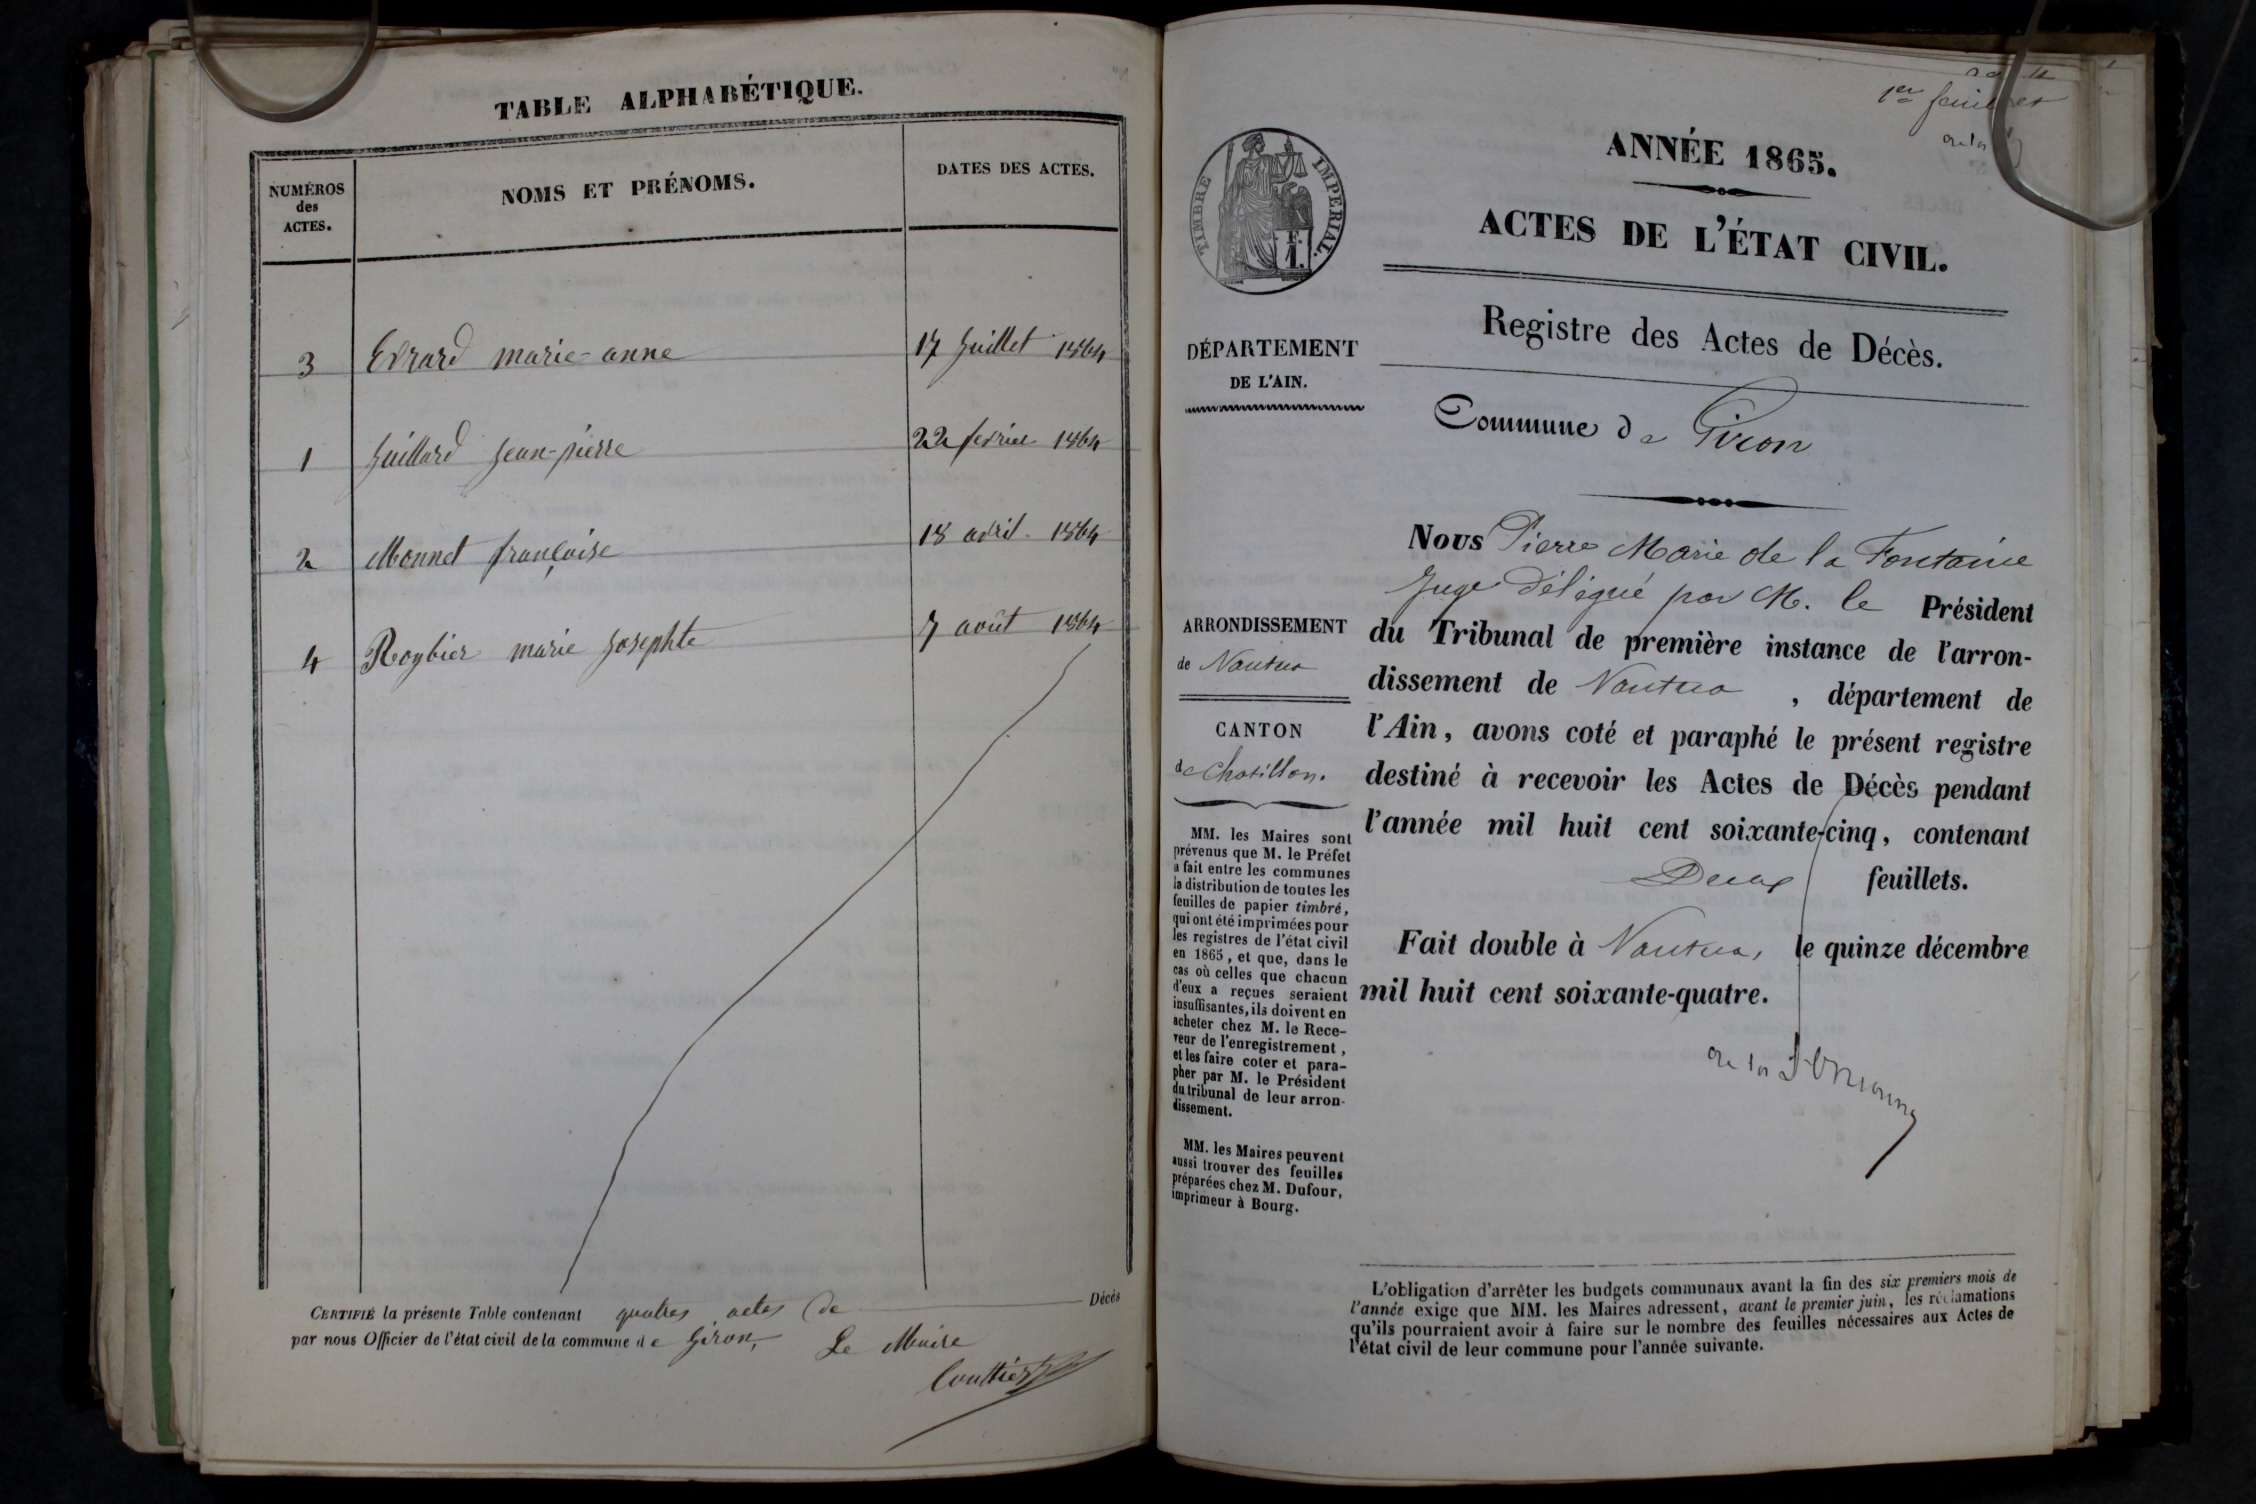 TABLE ALPHABÉTIQUE.
NUMÉROS
des
ACTES.
NOMS ET PRÉNOMS.
DATES DES ACTES.
3 Evrard marie-anne 17 Juillet 1864
1 Juillard Jean-pierre 22 fevrier 1864
2 Monnet françoise 18 avril 1864
4 Roybier marie Josephte 7 août 1864
CERTIFIÉ la présente Table contenant quatres actes de Décès
par nous Officier de l'état civil de la commune de Giron,
Le Maire
1er feuillet
TIMBRE IMPERIAL.
F.
1.
ANNÉE 1865.
ACTES DE L'ÉTAT CIVIL.
Registre des Actes de Décès.
Commune de Giron
DÉPARTEMENT
DE L'AIN.
ARRONDISSEMENT
de Nantua
CANTON
de Chatillon.
MM. les Maires sont
prévenus que M. le Préfet
a fait entre les communes
la distribution de toutes les
feuilles de papier timbré,
qui ont été imprimées pour
les registres de l'état civil
en 1865, et que, dans le
cas où celles que chacun
d'eux a reçues seraient
insuffisantes, ils doivent en
acheter chez M. le Rece-
veur de l'enregistrement,
et les faire coter et para-
pher par M. le Président
du tribunal de leur arron-
dissement.
MM. les Maires peuvent
aussi trouver des feuilles
préparées chez M. Dufour,
imprimeur à Bourg.
Nous Pierre Marie de la Fontaine
Juge délégué par M. le Président
du Tribunal de première instance de l'arron-
dissement de Nantua, département de
l'Ain, avons coté et paraphé le présent registre
destiné à recevoir les Actes de Décès pendant
l'année mil huit cent soixante-cinq, contenant
Deux feuillets.
Fait double à Nantua, le quinze décembre
mil huit cent soixante-quatre.
L'obligation d'arrêter les budgets communaux avant la fin des six premiers mois de
l'année exige que MM. les Maires adressent, avant le premier juin, les réclamations
qu'ils pourraient avoir à faire sur le nombre des feuilles nécessaires aux Actes de
l'état civil de leur commune pour l'année suivante.